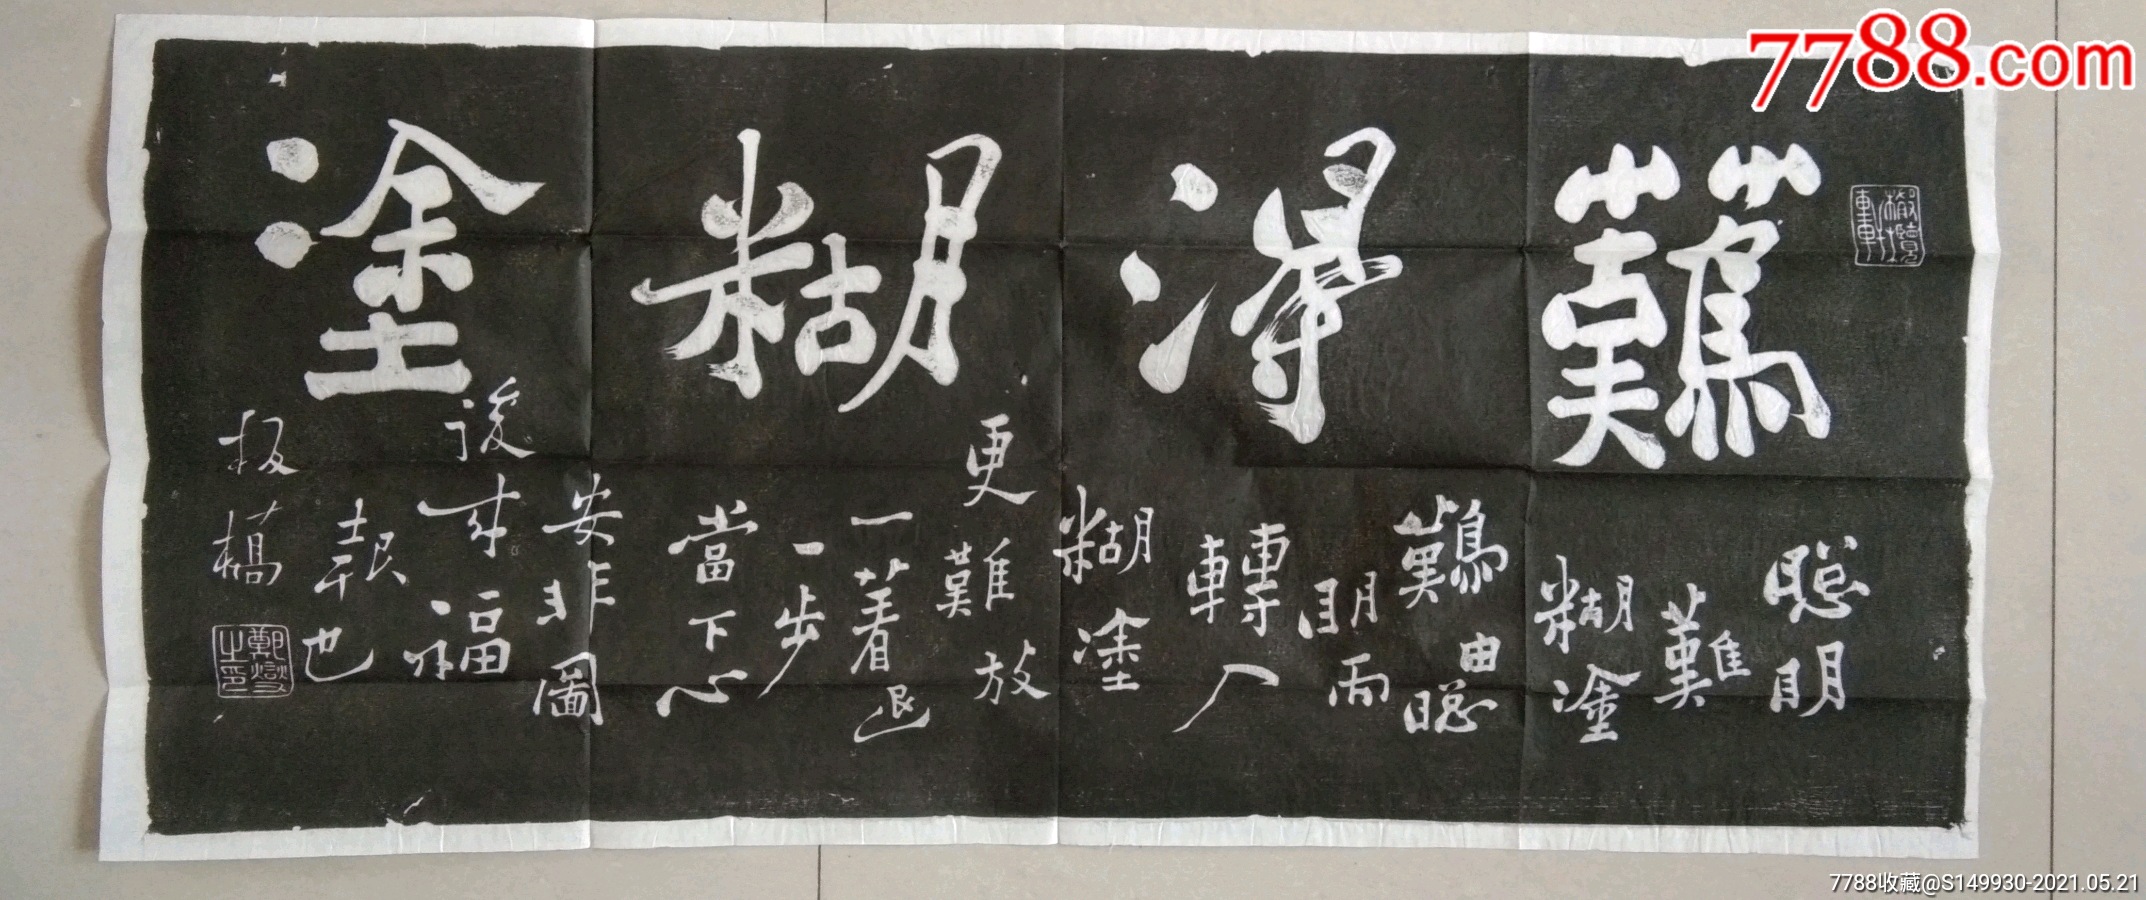 7788.com
橄欖軒
難得糊塗
聰明
難
糊塗
難由聰
明而
轉入
糊塗
更難放
一着退
一步
當下心
安非圖
後來福
報也
板橋
鄭燮之印
7788收藏@S149930-2021.05.21